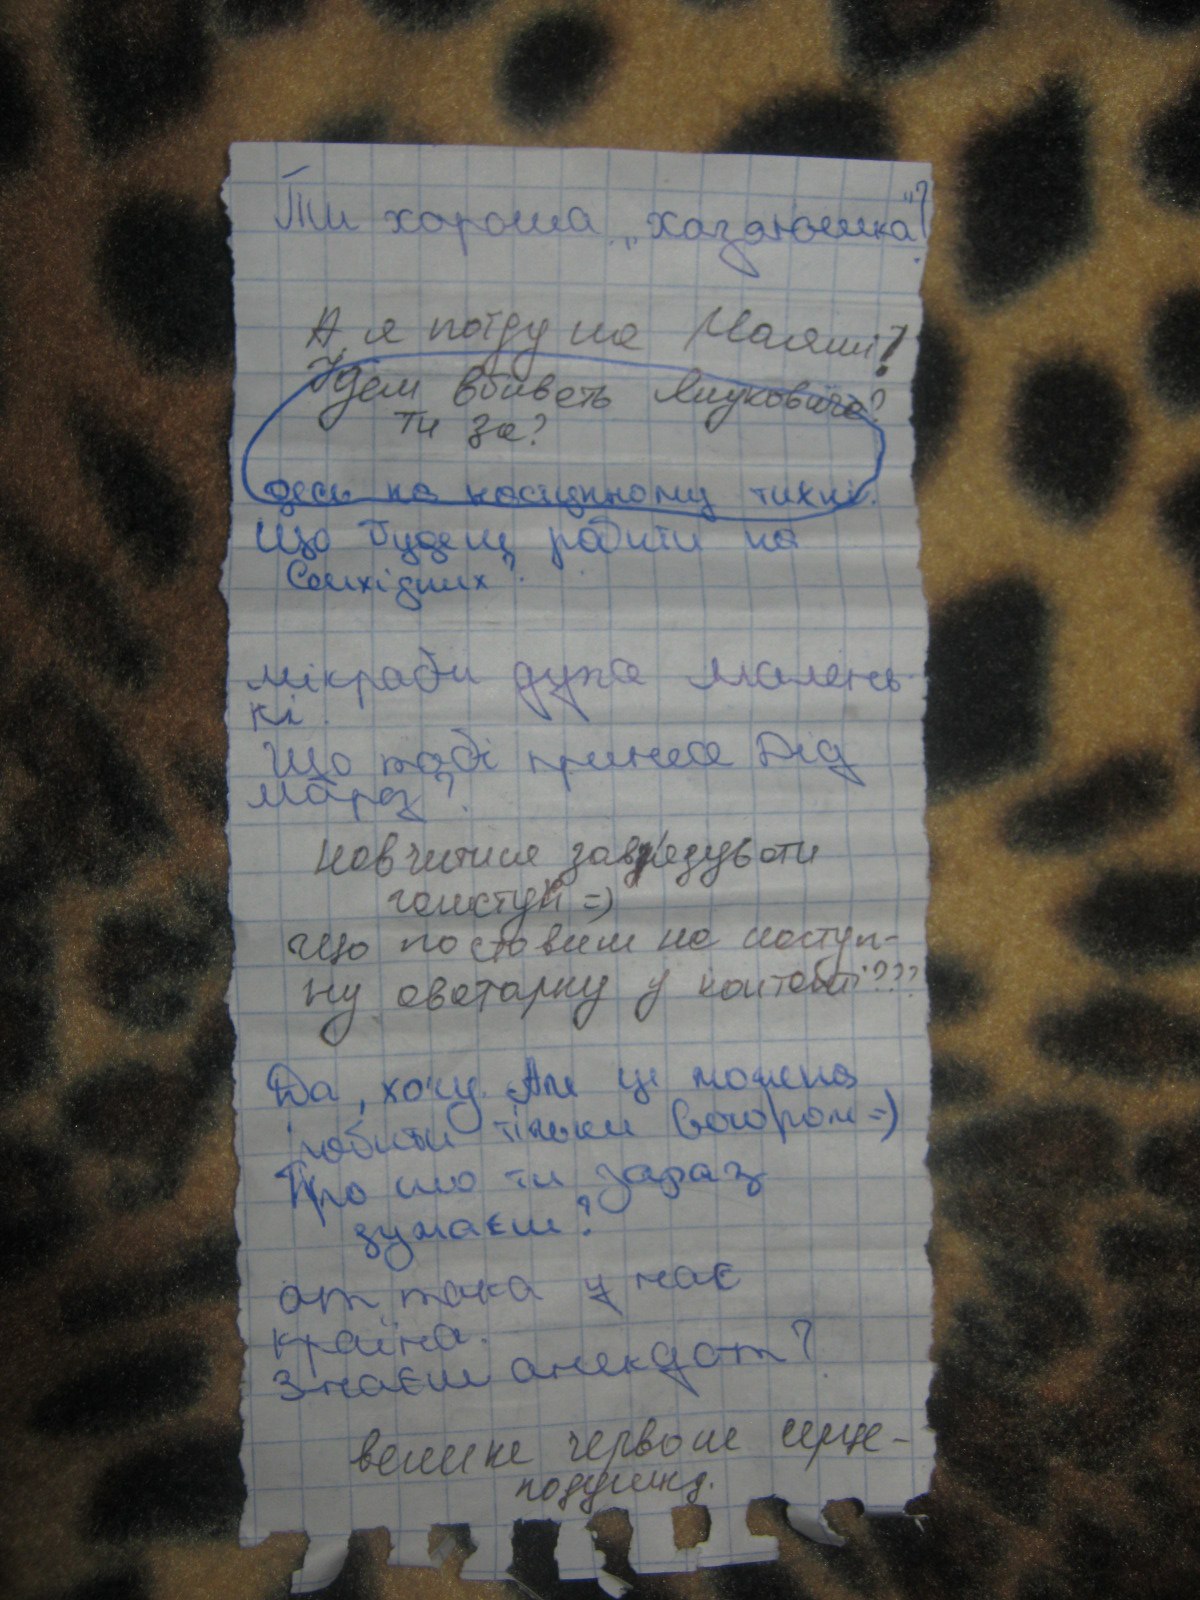 Ти хороша „хазяюшка"?
А я поїду на Мальти?
Ідем вбивать Януковича?
Ти за?
десь на наступному тижні.
Що будеш робити на
вихідних?
мікроби дуже малень-
кі.
Що тобі принесе Дід
Мороз?
Навчитися зав'язувати
галстук =)
Що поставиш на наступ-
ну аватарку у контакті???
Да, хочу. Але це можна
робити тільки вечором =)
Про що ти зараз
думаєш?
от така у нас
країна.
Знаєш анекдот?
велике червоне серце-
подушка.